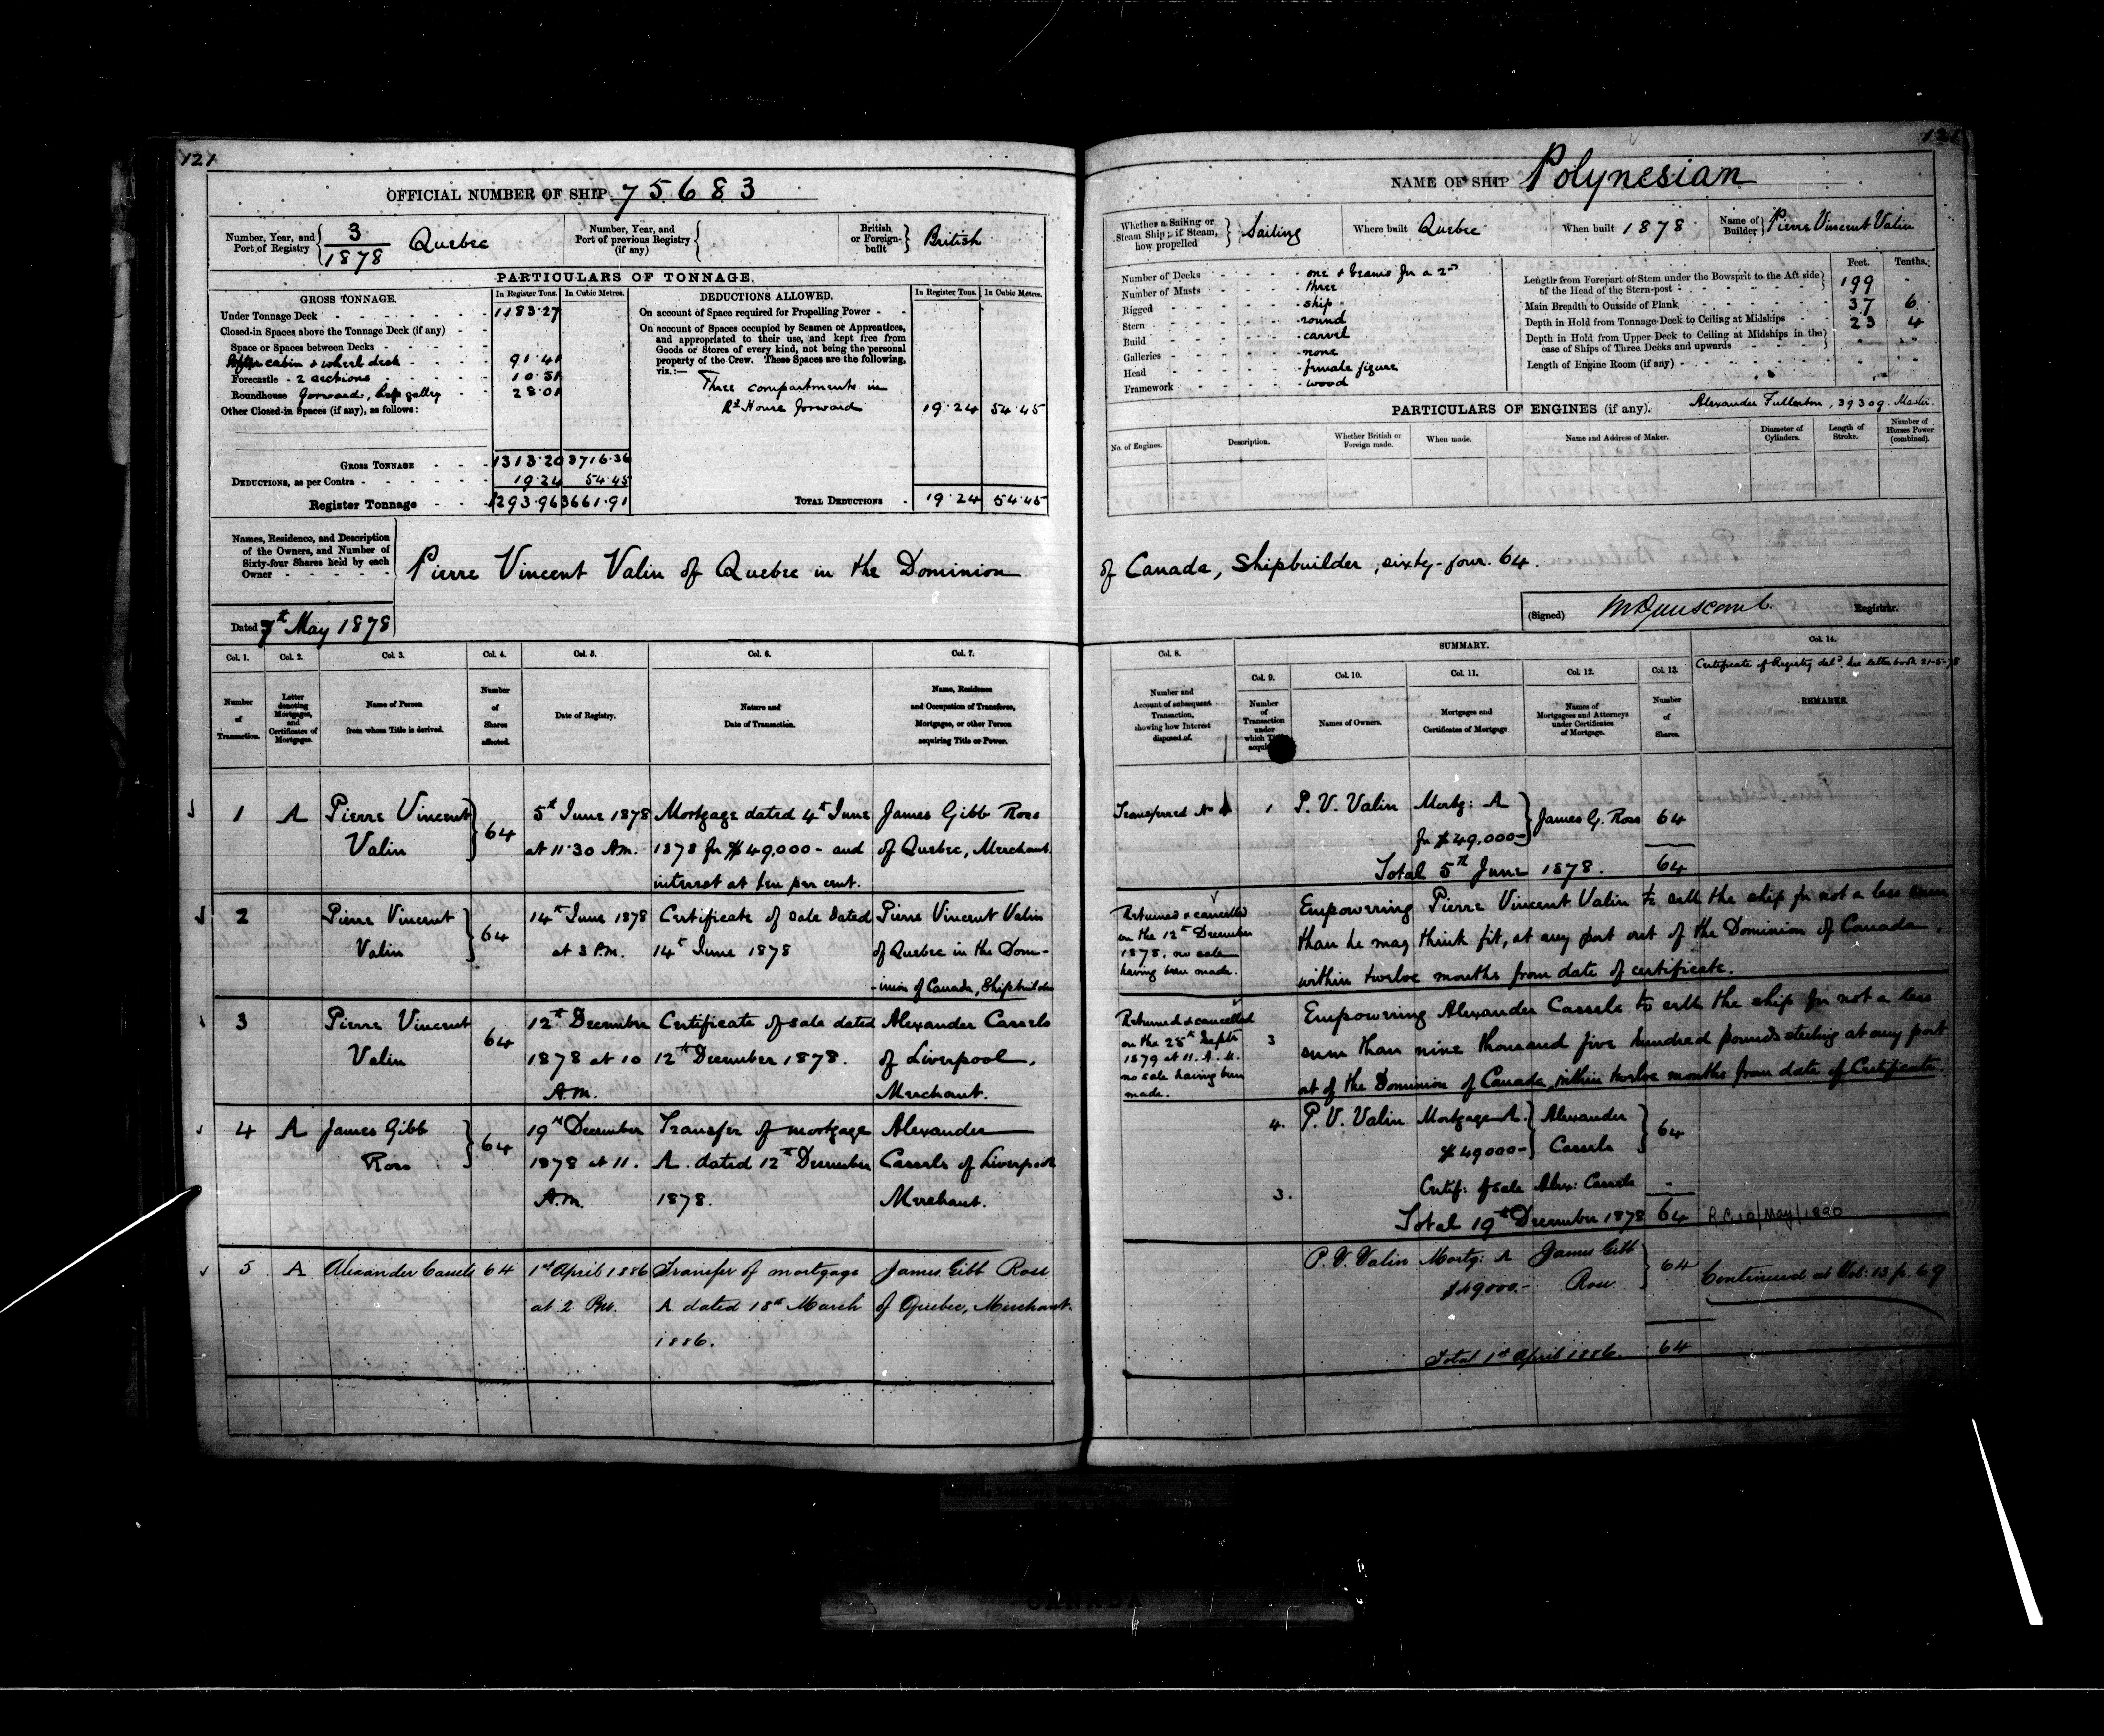 121
OFFICIAL NUMBER OF SHIP 75683
Number, Year, and Port of Registry 3/1878 Quebec
Number, Year, and Port of previous Registry (if any)
British or Foreign-built British
PARTICULARS OF TONNAGE.
GROSS TONNAGE. In Register Tons. In Cubic Metres.
Under Tonnage Deck 1183.27
Closed-in Spaces above the Tonnage Deck (if any)
Space or Spaces between Decks
After cabin & wheel deck 91.41
Forecastle - 2 sections 10.51
Roundhouse forward, galley 28.01
Other Closed-in Spaces (if any), as follows:
GROSS TONNAGE 1313.20 3716.36
DEDUCTIONS, as per Contra 19.24 54.45
Register Tonnage 1293.96 3661.91
DEDUCTIONS ALLOWED. In Register Tons. In Cubic Metres.
On account of Space required for Propelling Power
On account of Spaces occupied by Seamen or Apprentices,
and appropriated to their use, and kept free from
Goods or Stores of every kind, not being the personal
property of the Crew. These Spaces are the following,
viz.:—
Three compartments in
Rd House forward 19.24 54.45
TOTAL DEDUCTIONS 19.24 54.45
Names, Residence, and Description
of the Owners, and Number of
Sixty-four Shares held by each
Owner
Pierre Vincent Valin of Quebec in the Dominion
Dated 7th May 1878
Col. 1. Col. 2. Col. 3. Col. 4. Col. 5. Col. 6. Col. 7.
Number of Transaction.
Letter denoting Mortgages, and Certificates of Mortgages.
Name of Person from whom Title is derived.
Number of Shares affected.
Date of Registry.
Nature and Date of Transaction.
Name, Residence and Occupation of Transferee, Mortgagee, or other Person acquiring Title or Power.
1 A Pierre Vincent 64 5th June 1878 Mortgage dated 4th June James Gibb Ross
Valin at 11.30 A.M. 1878 for $49,000- and of Quebec, Merchant.
interest at ten per cent.
2 Pierre Vincent 64 14th June 1878 Certificate of sale dated Pierre Vincent Valin
Valin at 3 P.M. 14th June 1878 of Quebec in the Dom-
-inion of Canada, Shipbuilder
3 Pierre Vincent 64 12th December Certificate of sale dated Alexander Cassels
Valin 1878 at 10 12th December 1878. of Liverpool,
A.M. Merchant.
4 A James Gibb 64 19th December Transfer of mortgage Alexander
Ross 1878 at 11. A. dated 12th December Cassels of Liverpool
A.M. 1878. Merchant.
5 A Alexander Cassels 64 1st April 1886 Transfer of mortgage James Gibb Ross
at 2 P.M. A dated 18th March of Quebec, Merchant.
1886.
121
NAME OF SHIP Polynesian
Whether a Sailing or Steam Ship; if Steam, how propelled Sailing
Where built Quebec
When built 1878
Name of Builder Pierre Vincent Valin
Number of Decks one & beams for a 2nd
Number of Masts three
Rigged ship
Stern round
Build carvel
Galleries none
Head female figure
Framework wood
Feet. Tenths.
Length from Forepart of Stem under the Bowsprit to the Aft side
of the Head of the Stern-post 199 -
Main Breadth to Outside of Plank 37 6
Depth in Hold from Tonnage Deck to Ceiling at Midships 23 4
Depth in Hold from Upper Deck to Ceiling at Midships in the
case of Ships of Three Decks and upwards
Length of Engine Room (if any)
PARTICULARS OF ENGINES (if any). Alexander Fullerton, 39309. Master.
No. of Engines. Description. Whether British or Foreign made. When made. Name and Address of Maker. Diameter of Cylinders. Length of Stroke. Number of Horses Power (combined).
of Canada, Shipbuilder, sixty-four. 64.
(Signed) Registrar.
Col. 8. SUMMARY. Col. 14.
Certificate of Registry deld. See letter book 21-5-78
Col. 9. Col. 10. Col. 11. Col. 12. Col. 13.
Number and Account of subsequent Transaction, showing how Interest disposed of.
Number of Transaction under which Title acquired.
Names of Owners.
Mortgages and Certificates of Mortgage
Names of Mortgagees and Attorneys under Certificates of Mortgage.
Number of Shares.
REMARKS.
Transferred No 4 1 P. V. Valin Mortg: A James G. Ross 64
for $49,000-
Total 5th June 1878. 64
Returned & cancelled
on the 12th December
1878, no sale
having been made.
Empowering Pierre Vincent Valin to sell the ship for not a less sum
than he may think fit, at any port out of the Dominion of Canada,
within twelve months from date of certificate.
Returned & cancelled
on the 25th Septr
1879 at 11. A. M.
no sale having been
made.
3 Empowering Alexander Cassels to sell the ship for not a less
sum than nine thousand five hundred pounds sterling at any port
out of the Dominion of Canada, within twelve months from date of Certificate.
4. P. V. Valin Mortgage A. Alexander 64
$49000- Cassels
3. Certif: of sale Alex: Cassels -
Total 19th December 1878 64
P. V. Valin Mortg: A James Gibb 64
$49000.- Ross
Continued at Vol: 13 p. 69
Total 1st April 1886. 64
CANADA